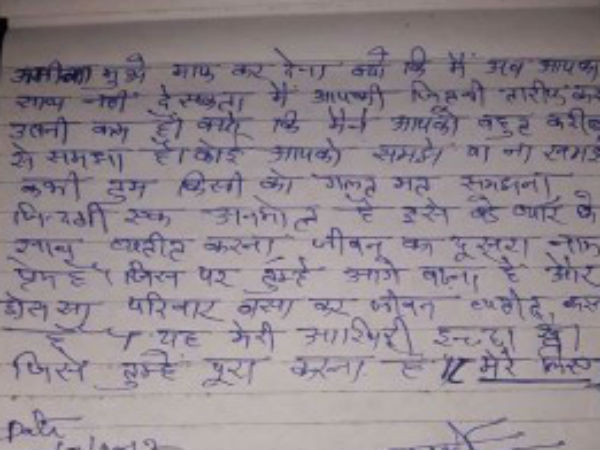 मुझे माफ कर देना क्यों कि मैं अब आपका
साथ नहीं दे सकता मैं आपकी जितनी तारीफ करू
उतनी कम है। क्यों कि मैंने आपको बहुत करीब
से समझा है। कोई आपको समझे या ना समझे
कभी तुम किसी को गलत मत समझना
जिन्दगी एक अनमोल है इसे बड़े प्यार के
साथ व्यतीत करना जीवन का दूसरा नाम
प्रेम है। जिस पर तुम्हे आगे बढ़ना है और
छोटा सा परिवार बसा कर जीवन व्यतीत करना
है। यह मेरी आखिरी इच्छा है।
जिसे तुम्हें पूरा करना है॥ मेरे लिए
Date